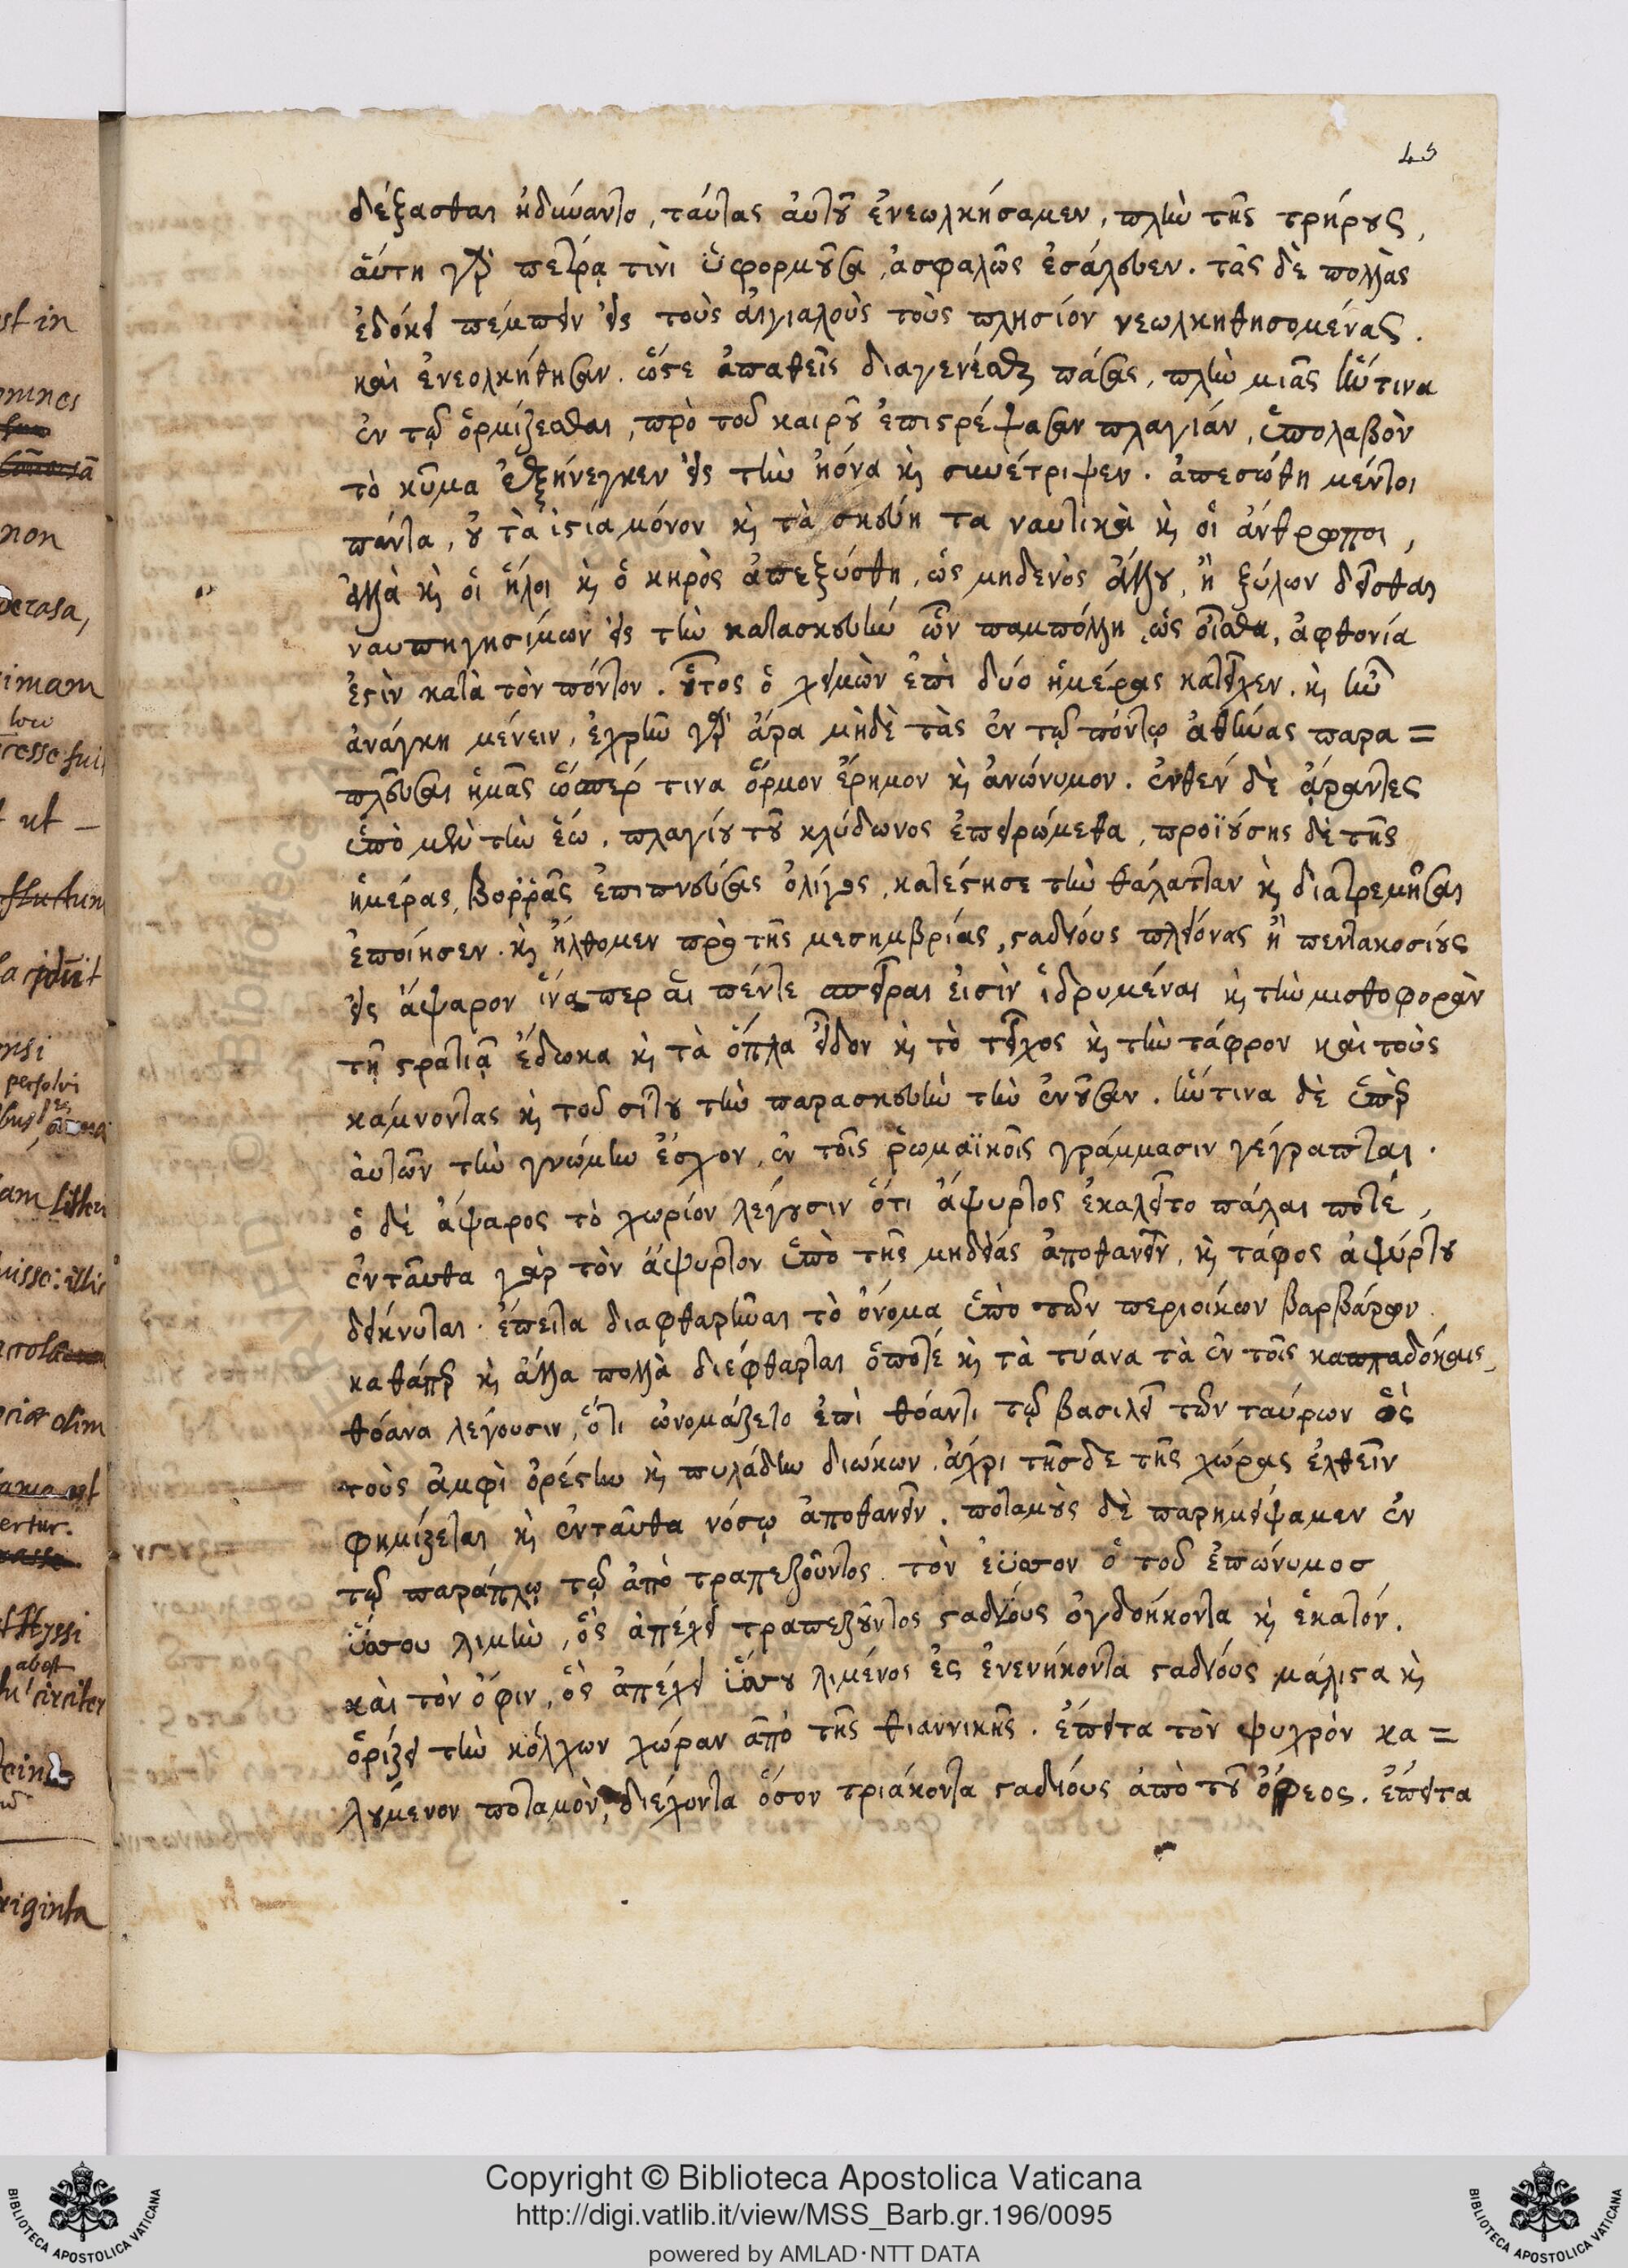 45
δέξασθαι ἠδύναντο, ταύτας αὐτοῦ ἐνεωλκήσαμεν, πλὴν τῆς τριήρους,
αὕτη γὰρ πέτρᾳ τινὶ ὑφορμοῦσα, ἀσφαλῶς ἐσάλευεν. τὰς δὲ πολλὰς
ἐδόκει πέμπειν εἰς τοὺς αἰγιαλοὺς τοὺς πλησίον νεωλκηθησομένας.
καὶ ἐνεολκήθησαν. ὥστε ἀπαθεῖς διαγενέσθαι πάσας, πλὴν μιᾶς ἥντινα
ἐν τῷ ὁρμίζεσθαι, πρὸ τοῦ καιροῦ ἐπιστρέψασαν πλαγίαν, ὑπολαβὸν
τὸ κῦμα ἐξήνεγκεν εἰς τὴν ἠόνα καὶ συνέτριψεν. ἀπεσώθη μέντοι
πάντα, οὐ τὰ ἱστία μόνον καὶ τὰ σκεύη τα ναυτικὰ καὶ οἱ ἄνθρωποι,
ἀλλὰ καὶ οἱ ἧλοι καὶ ὁ κηρὸς ἀπεξύσθη, ὡς μηδενὸς ἄλλου, ἢ ξύλων δεῖσθαι
ναυπηγησίμων εἰς τὴν κατασκευὴν ὧν παμπόλλη, ὡς οἶσθα, ἀφθονία
ἐστὶν κατὰ τὸν πόντον. οὗτος ὁ χειμὼν ἐπὶ δύο ἡμέρας κατεῖχεν. καὶ ἦν
ἀνάγκη μένειν, ἐχρῆν γὰρ ἄρα μὴδὲ τὰς ἐν τῷ πόντῳ ἀθήνας παρα=
πλεῦσαι ἡμᾶς ὥσπερ τινα ὅρμον ἔρημον καὶ ἀνώνυμον. ἐνθεν δὲ ἄραντες
ὑπὸ μὲν τὴν ἕω, πλαγίου τοῦ κλύδωνος ἐπειρώμεθα, προϊούσης δὲ τῆς
ἡμέρας, βορρᾶς ἐπιπνεύσας ὀλίγος, κατέστησε τὴν θάλατταν καὶ διατρεμῆσαι
ἐποίησεν. καὶ ἤλθομεν πρὸ τῆς μεσημβρίας, σταδίους πλείονας ἢ πεντακοσίους
εἰς ἄψαρον ἵνα περ αἱ πέντε σπεῖραι εἰσὶν ἱδρυμέναι καὶ τὴν μισθοφορὰν
τῇ στρατιᾷ ἔδωκα καὶ τὰ ὅπλα εἶδον καὶ τὸ τεῖχος καὶ τὴν τάφρον καὶ τοὺς
κάμνοντας καὶ τοῦ σίτου τὴν παρασκευὴν τὴν ἐνοῦσαν. ἥντινα δὲ ὑπὲρ
αὐτῶν τὴν γνώμην ἔσχον, ἐν τοῖς ῥωμαϊκοῖς γράμμασιν γέγραπται.
ὁ δὲ ἄψαρος τὸ χωρίον λέγουσιν ὅτι ἄψυρτος ἐκαλεῖτο πάλαι ποτέ,
ἐνταῦθα γὰρ τὸν ἄψυρτον ὑπὸ τῆς μηδείας ἀποθανεῖν, καὶ τάφος ἀψύρτου
δείκνυται. ἔπειτα διαφθαρῆναι τὸ ὄνομα ὑπὸ τῶν περιοίκων βαρβάρων.
καθάπερ καὶ ἄλλα πολλὰ διέφθαρται ὁπότε καὶ τὰ τύανα τὰ ἐν τοῖς καππαδόκαις,
θόανα λέγουσιν, ὅτι ὠνομάζετο ἐπὶ θόαντι τῷ βασιλεῖ τῶν ταύρων ὃς
τοὺς ἀμφὶ ὀρέστην καὶ πυλάδην διώκων, ἄχρι τῆσδε τῆς χώρας ἐλθεῖν
φημίζεται καὶ ἐνταῦθα νόσῳ ἀποθανεῖν. ποταμοὺς δὲ παρημείψαμεν ἐν
τῷ παράπλῳ τῷ ἀπὸ τραπεζοῦντος. τὸν ἐϋσσον ὁ τοῦ ἐπώνυμοσ
ὕσσου λιμὴν, ὃς ἀπέχει τραπεζοῦντος σταδίους ὀγδοήκοντα καὶ ἑκατόν.
καὶ τὸν ὄφιν, ὃς ἀπέχει ὕσσου λιμένος ἐς ἐνενήκοντα σταδίους μάλιστα καὶ
ὁρίζει τὴν κόλχων χώραν ἀπὸ τῆς θιαννικῆς. ἔπειτα τὸν ψυχρὸν κα=
λούμενον ποταμὸν, διέχοντα ὅσον τριάκοντα σταδίους ἀπὸ τοῦ ὄφεος. ἔπειτα
st in
omnes
non
decrasa,
imam
loco
ut
Hyssi
abest
circiter
riginta
Copyright © Biblioteca Apostolica Vaticana
http://digi.vatlib.it/view/MSS_Barb.gr.196/0095
powered by AMLAD·NTT DATA
BIBLIOTECA APOSTOLICA VATICANA
BIBLIOTECA APOSTOLICA VATICANA